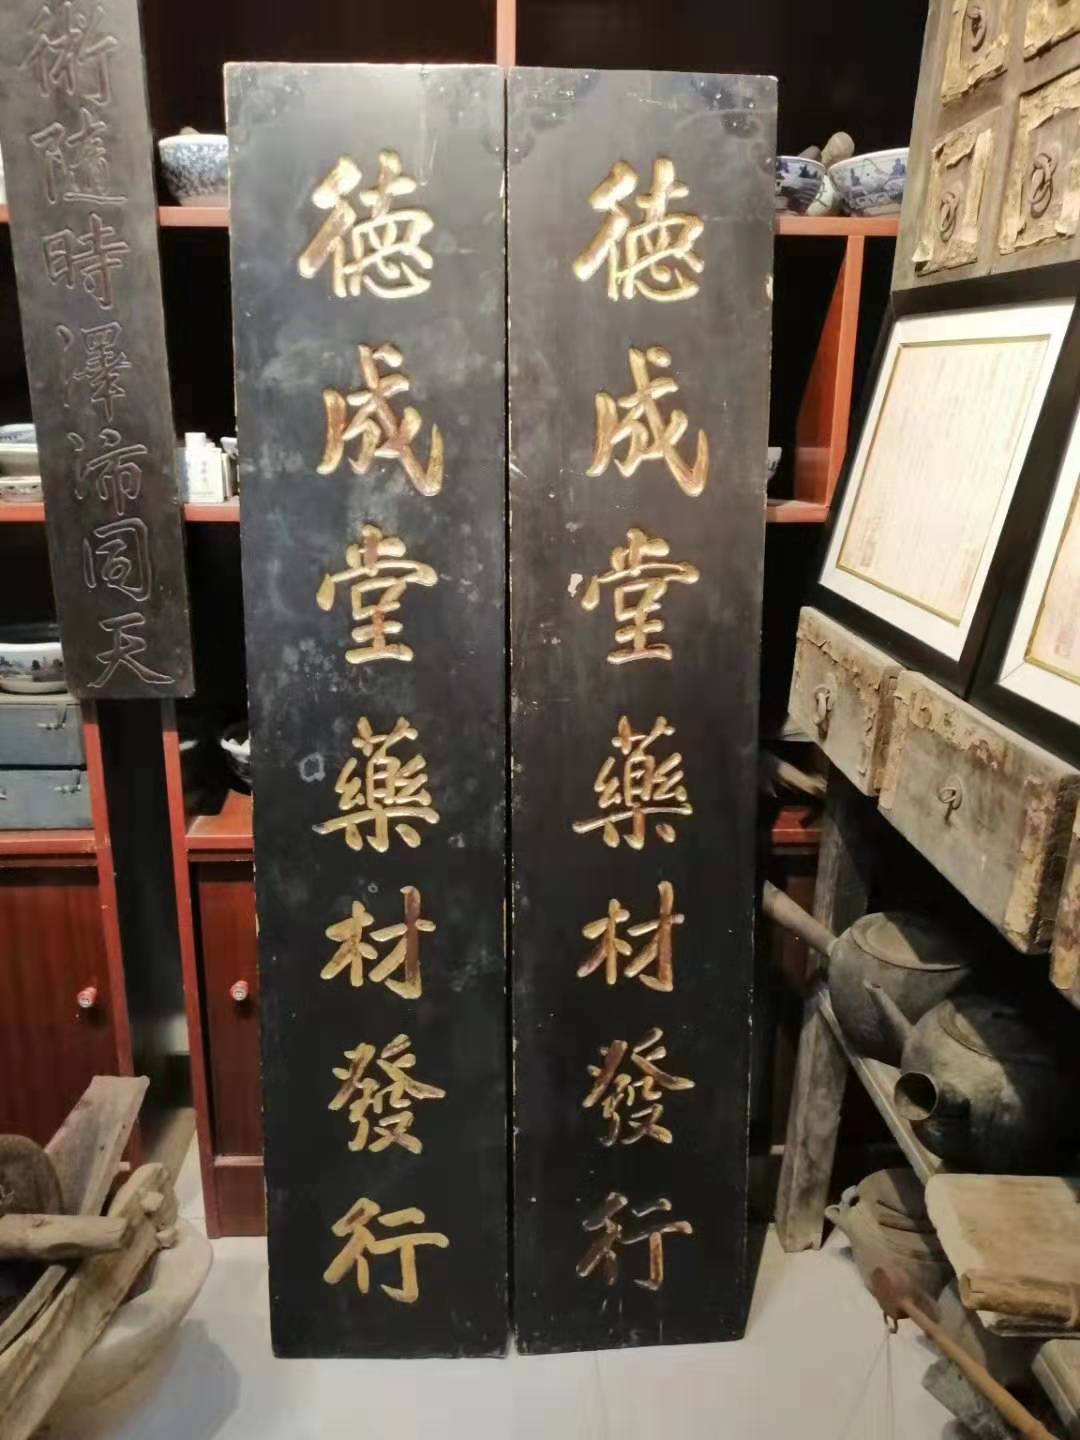 術隨時澤沛同天
德成堂藥材發行
德成堂藥材發行